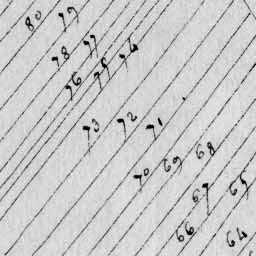 80 79
78 77
76 75 74
73 72 71
70 69 68
67 65
66 64